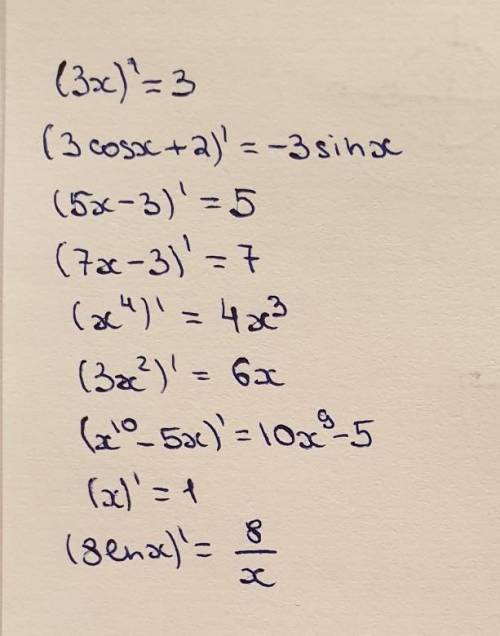 (3x)' = 3
(3cosx + 2)' = -3sinx
(5x - 3)' = 5
(7x - 3)' = 7
(x⁴)' = 4x³
(3x²)' = 6x
(x¹⁰ - 5x)' = 10x⁹ - 5
(x)' = 1
(8lnx)' = 8/x